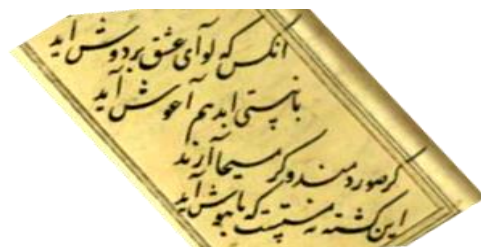 انکس که لوای عشق بر دوش آید
با نیستی ابد هم آغوش آید
گر صور دمند و گر مسیحا آرند
این کشته نه منتیست که با هوش آید